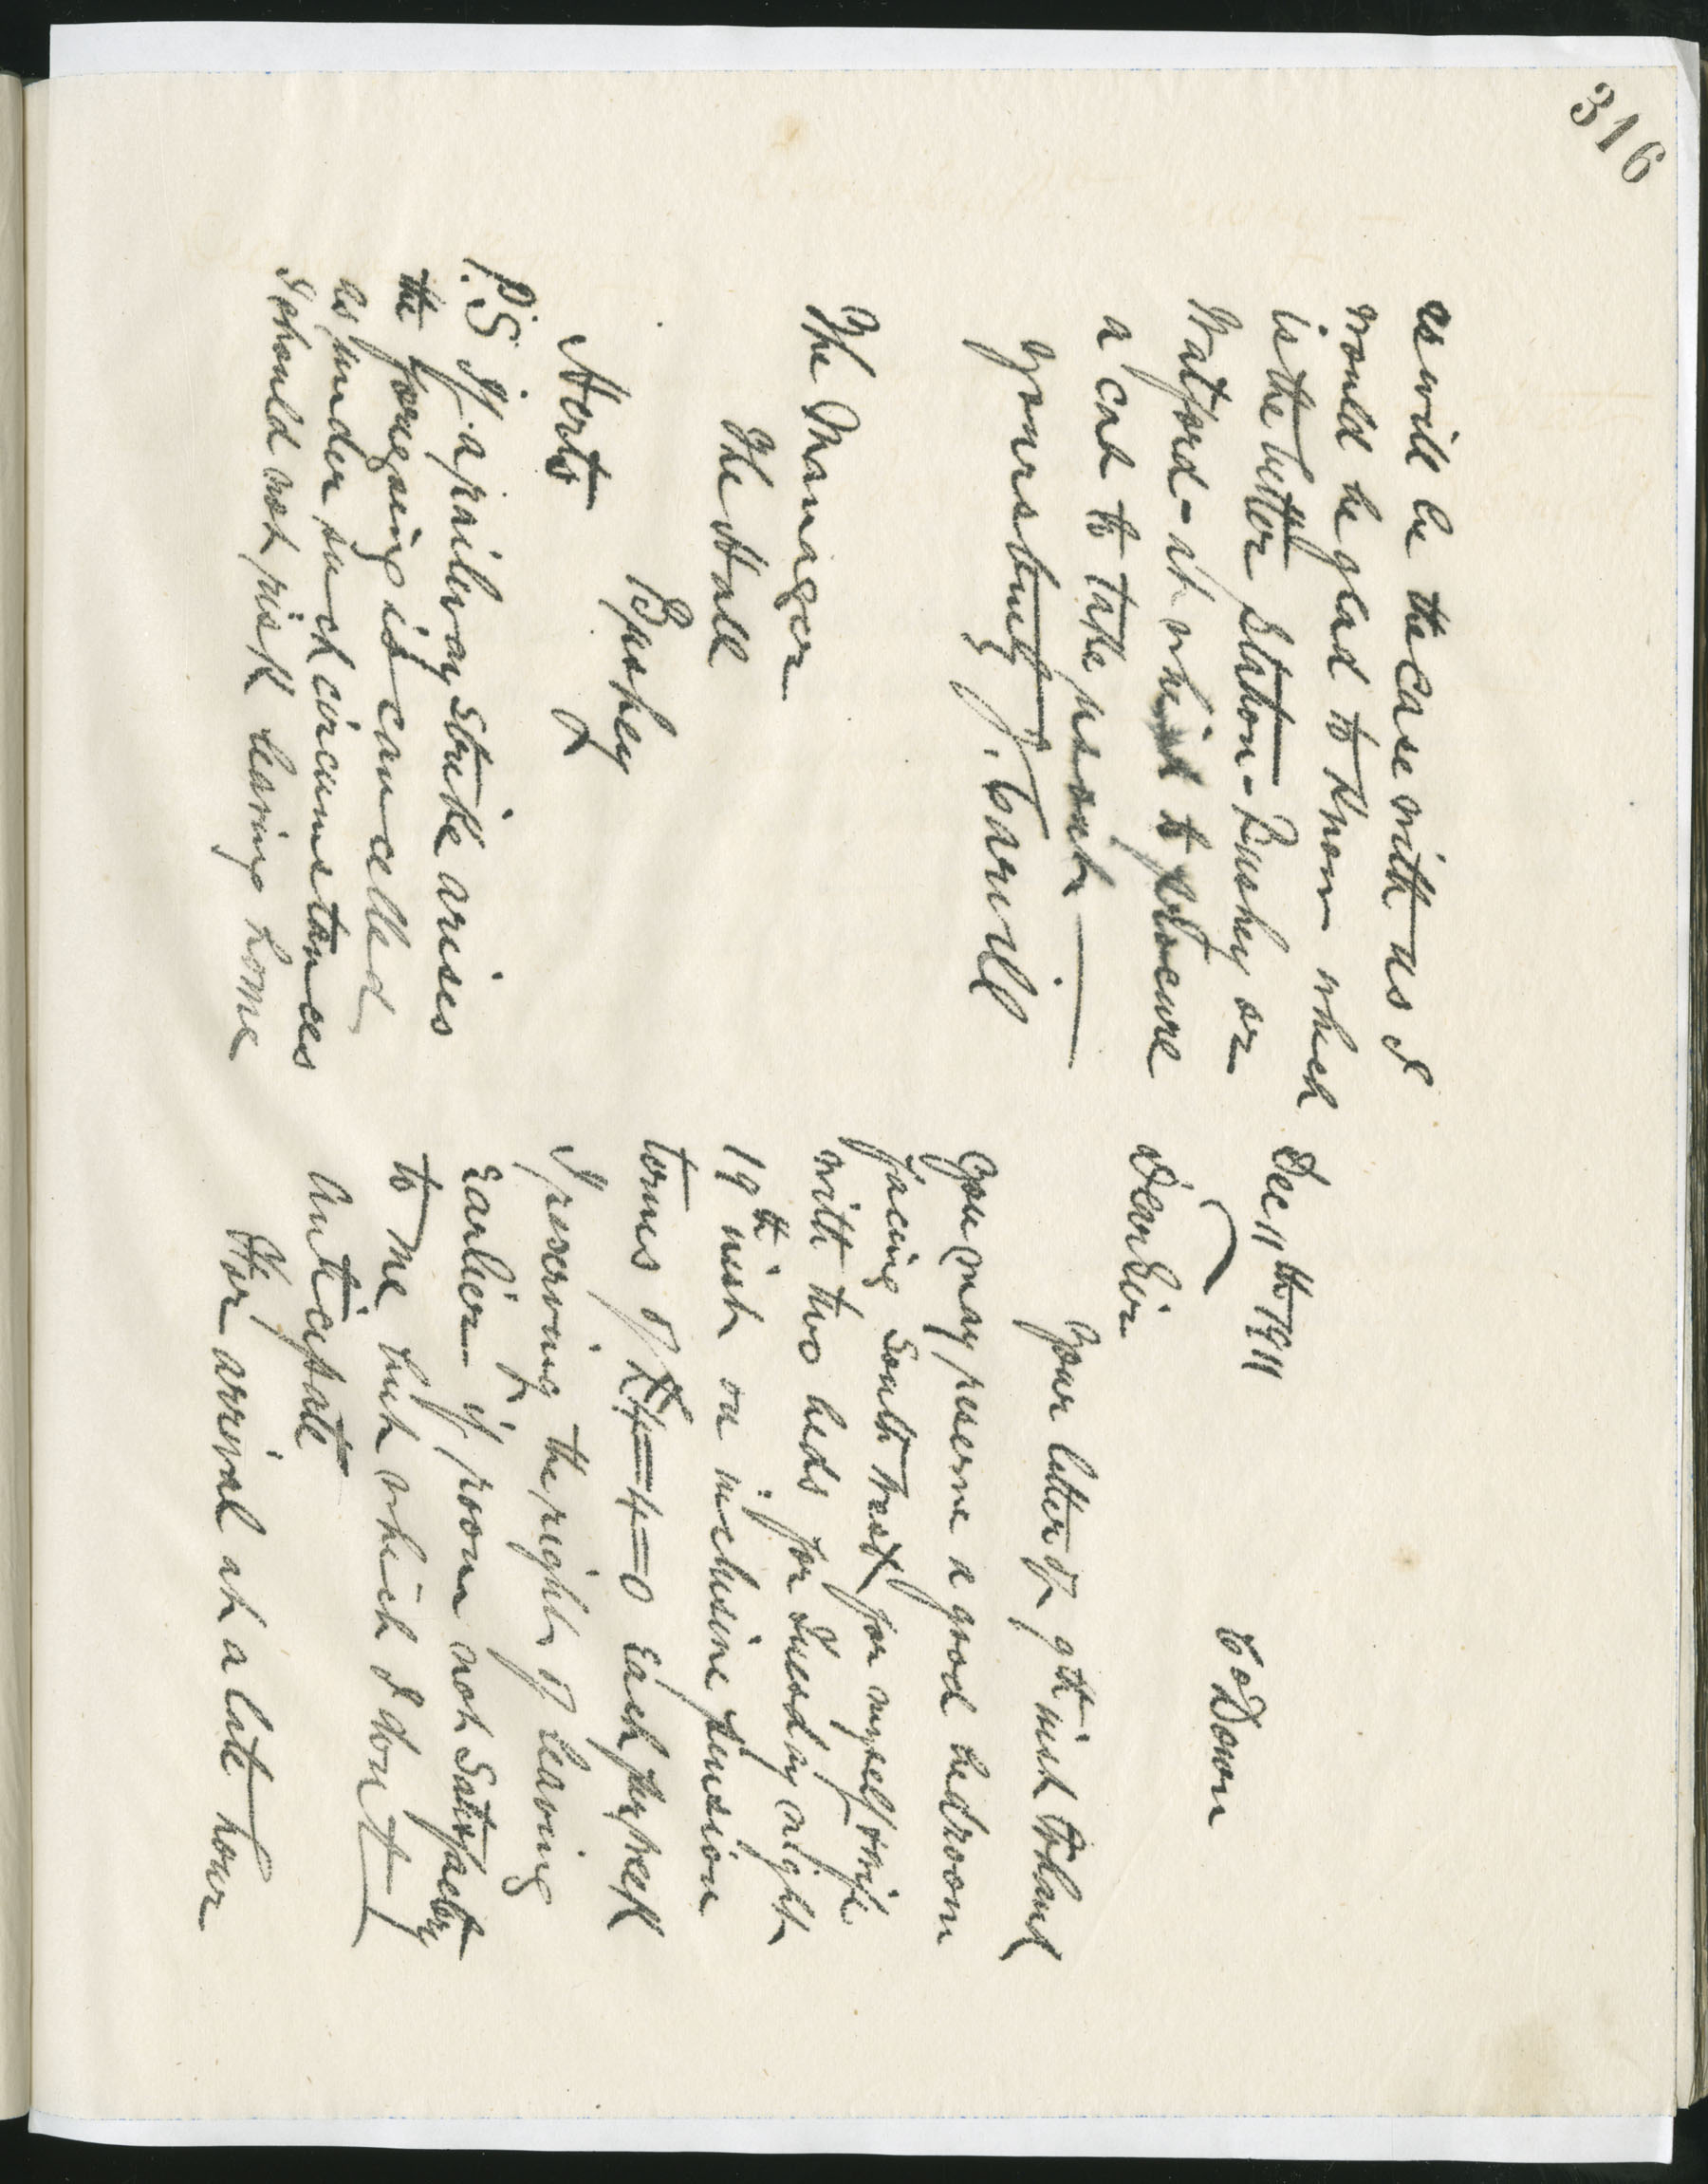 316
Co Down
Dec 11th 1911
Dear Sir
Your letter of 9th inst to hand
You may reserve a good bedroom
facing South West for myself & wife
with two beds for Tuesday night
19th inst on inclusive pension
terms of £4=4=0 each per week
I reserving the right of leaving
earlier if room not satisfactory
to me but which I don't
anticipate
For arrival at a late hour
as will be the case with us I
would be glad to know which
is the better station - Bushey or
Watford - at which to procure
a cab to take us out
Yours truly J. Carvill
The Manager
The Hall
Bushey
Herts
P.S. If a railway strike arises
the foregoing is cancelled
as under such circumstances
I should not risk leaving home